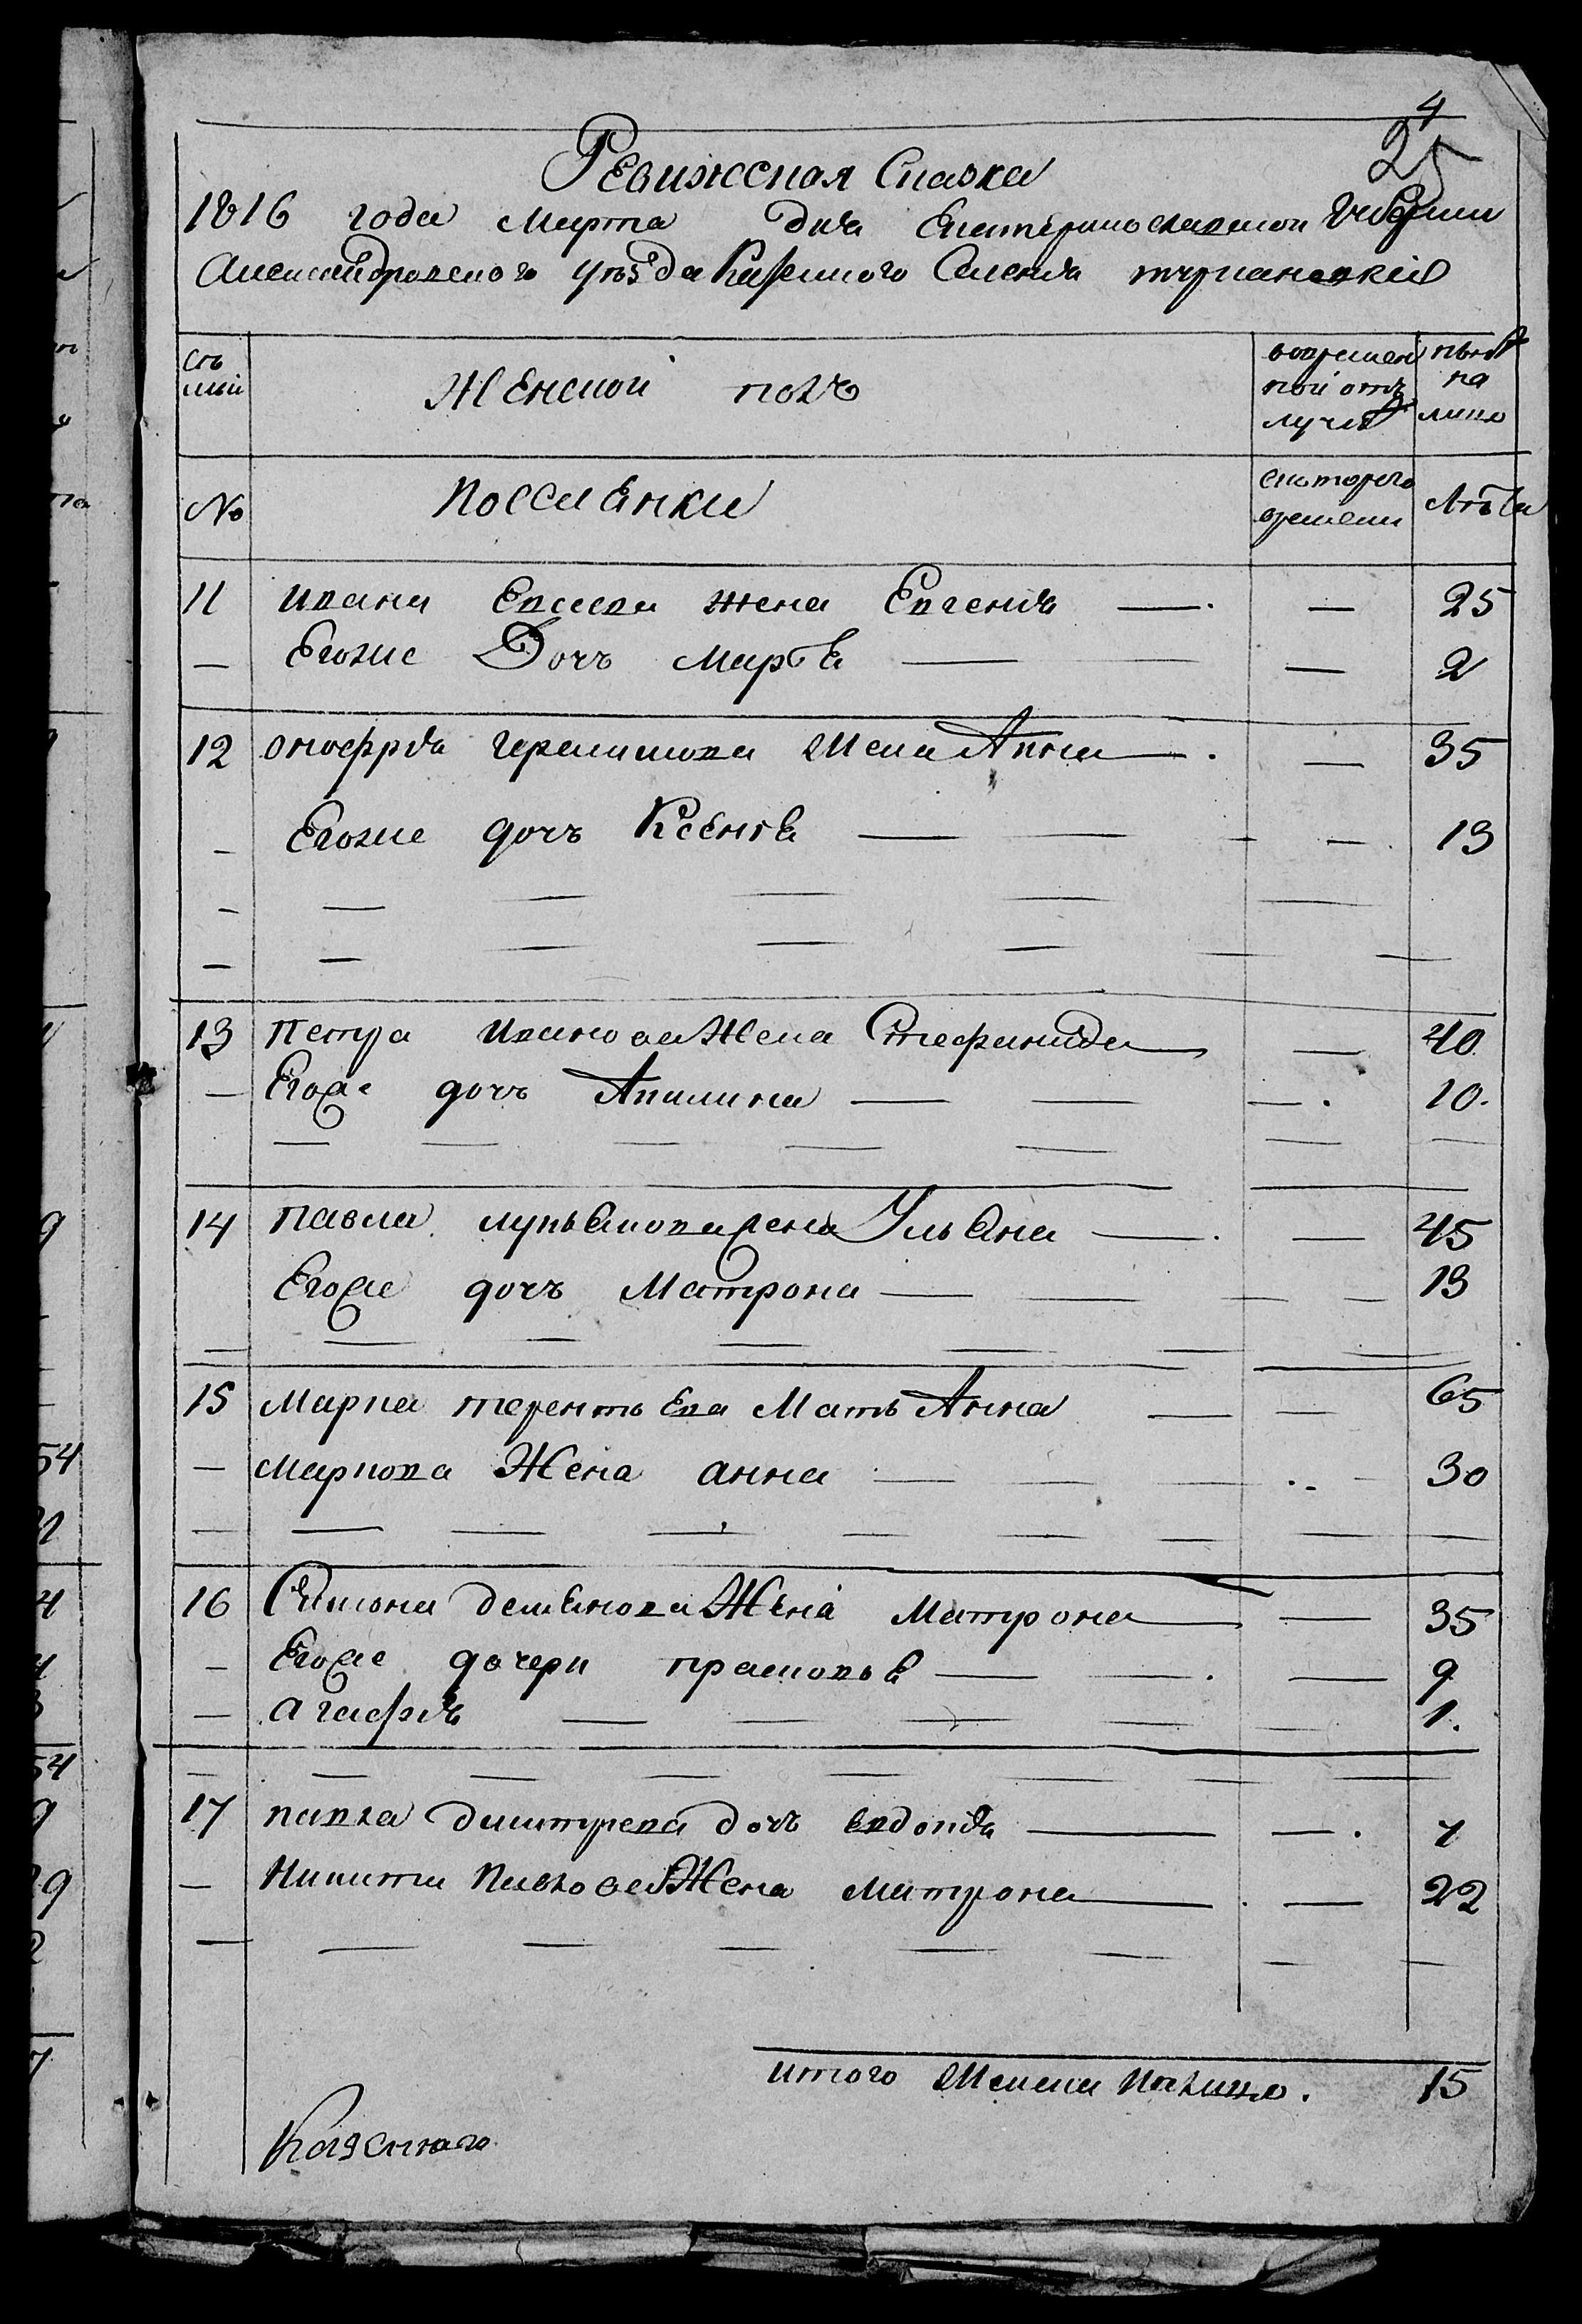 4
25
Ревижская Сказка
1816 года марта дня Екатеринославской Губернии
Александровского уѣзда Казенного Селения
Женской полъ
во временной отлучкѣ
нынѣ на лицо
№
Поселянки
с которого времени
Лѣта
11 ивана Евсеева жена Евгения — — 25
— Егоже Дочъ Марѳа — — 2
12 онофрия герасимова жена Анна — — 35
— Егоже дочъ Ксения — — 13
13 Петра Иванова Жена Стефанида — 40
— Егоже дочъ Акилина — — 10
14 павла лукьянова жена Ульяна — — 45
Егоже дочъ Матрона — — 13
15 Марка терентьева Мать Анна — — 65
— Маркова Жена анна — — 30
16 Симона демянова Жена Матрона — 35
— Егоже дочери прасковья — — 9
— Агафия — — 1
17 павла дмитрева дочъ евдокия — — 7
— Никити Павлова Жена матрона — — 22
итого Женска налицо. 15
Казенного